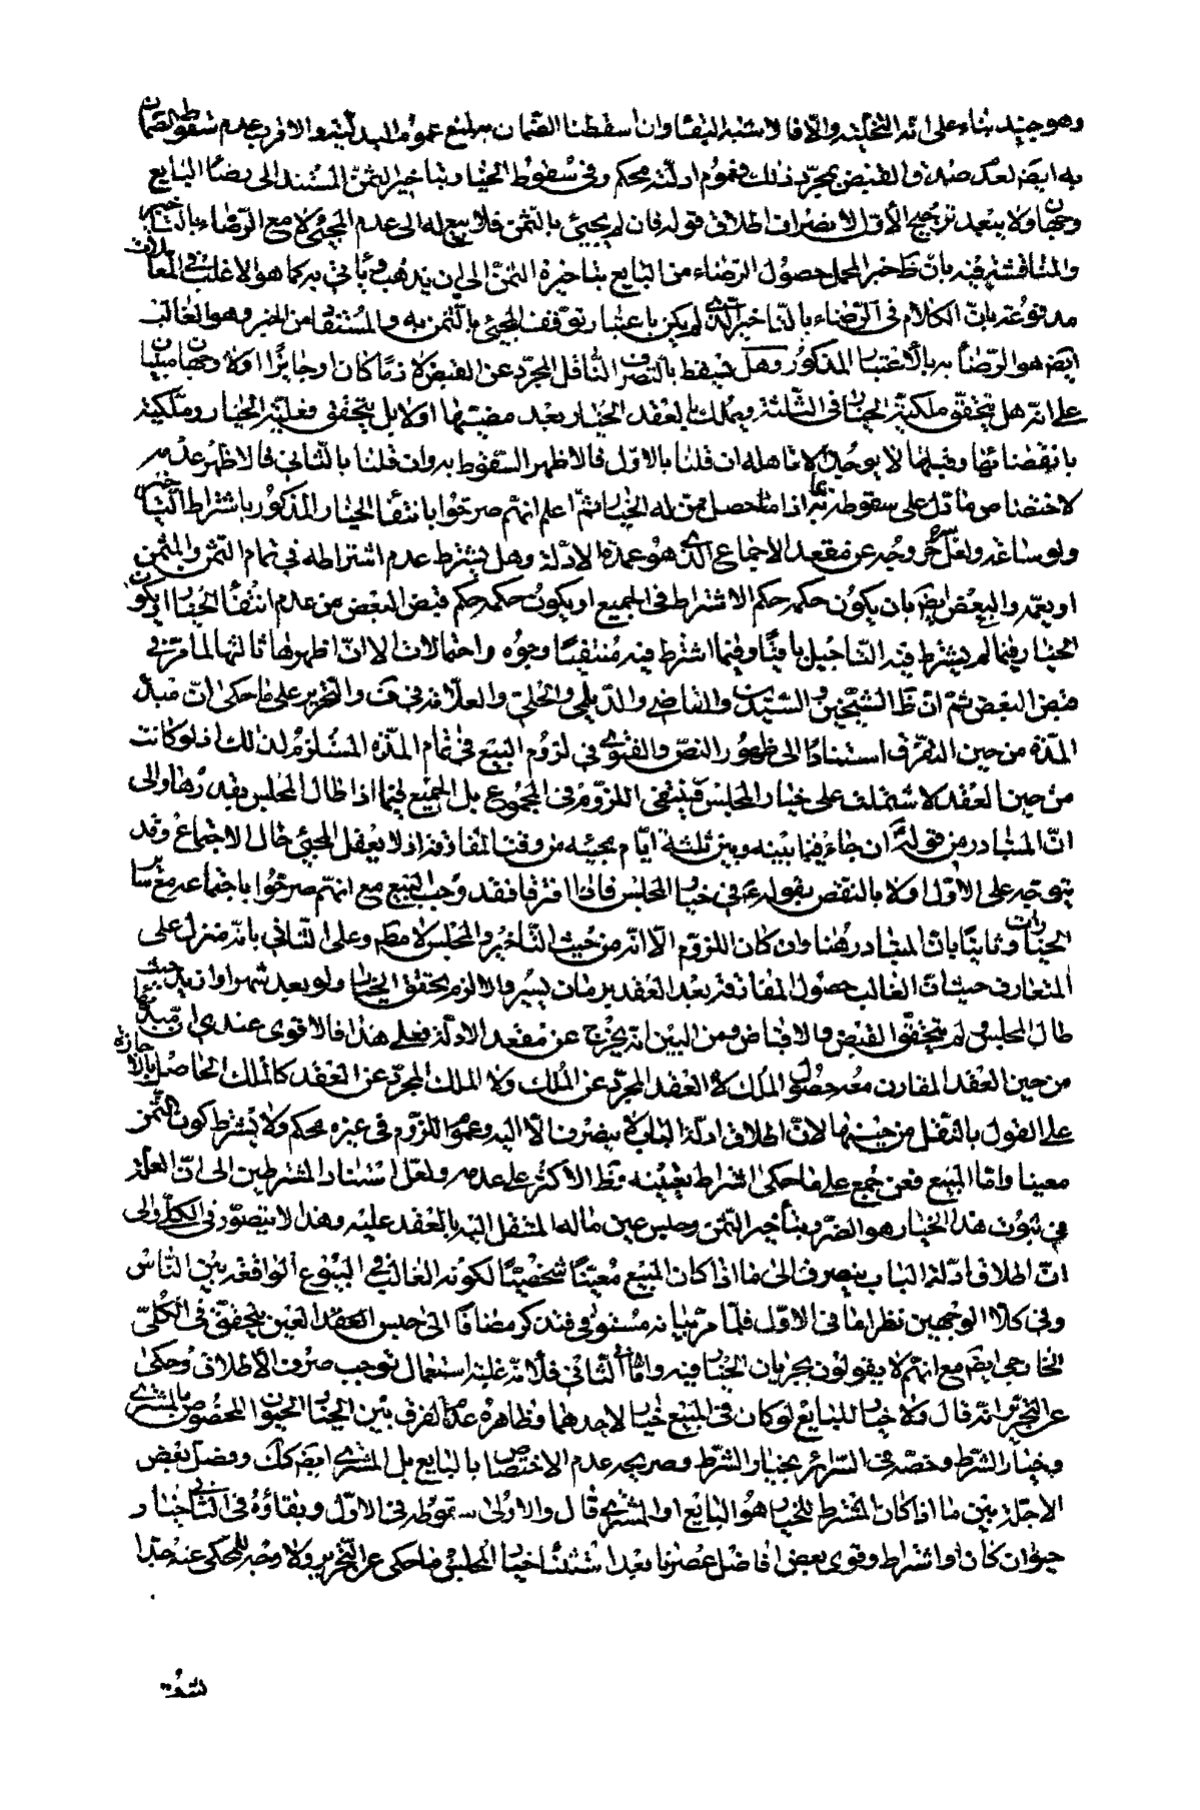 وهو جيد بناء على انه التخلية والا فالاشبه البقاء وان اسقطنا الضمان به لمنع عموم البدلية والاقرب عدم سقوط الضمان
به ايضا لعدم صدق القبض بمجرد ذلك فعموم ادلته محكم وفى سقوط الخيار بتاخير الثمن المستند الى رضا البايع
وجهان ولا يبعد ترجيح الاول لانصراف اطلاق قوله فان لم يجئ بالثمن فلا بيع له الى عدم المجئ لا مع الرضاء بالتاخير
والمناقشة فيه بان ظ خبر المحمل حصول الرضاء من البايع بتاخيره الثمن الى ان يذهب وياتى به كما هو الاغلب فى المعاملات
مدفوعة بان الكلام فى الرضاء بالتاخير الذى لم يكن باعتبار توقف المجئ بالثمن به والمستفاد من الخبر وهو الغالب
ايضا هو الرضا به بالاعتبار المذكور وهل يسقط بالتصرف الناقل المجرد عن القبض لازما كان او جايزا او لا وجهان مبنيان
على انه هل يتحقق ملكية الخيار فى الثلثة ويملك العقد الخيار بعد مضيها او لا بل يتحقق فعلية الخيار وملكيته
بانقضائها وقبلها لا يوجد الا تاهله ان قلنا بالاول فالاظهر السقوط به وان قلنا بالثانى فالاظهر عدمه
لاختصاص ما دل على سقوطه به بما اذا حصل ممن له الخيار ثم اعلم انهم صرحوا بانتفاء الخيار المذكور باشتراط التاخير
ولو ساعة ولعل خروجه عن مقعد الاجماع الذى هو عمدة الادلة وهل يشترط عدم اشتراطه فى تمام الثمن والمثمن
او يعمه والبعض ايضا بان يكون حكمه حكم الاشتراط فى الجميع او يكون حكمه حكم قبض البعض من عدم انتفاء الخيار او يكون
الخيار فيما لم يشترط فيه التاجيل باقيا وفيما اشترط فيه منتفيا وجوه واحتمالات الا ان اظهرها ثالثها لما مر فى
قبض البعض ثم ان ظ الشيخين والسيدين والقاضى والديلمى والحلى والعلامة فى ف والتحرير على ما حكى ان مبدأ
المدة من حين التفرق استنادا الى ظهور النص والفتوى فى لزوم البيع فى تمام المدة المستلزم لذلك اذ لو كانت
من حين العقد لاشتملت على خيار المجلس فينتفى اللزوم فى المجموع بل الجميع فيما اذا طال المجلس بقدرها والى
ان المتبادر من قوله ان جاء فيما بينه وبين ثلثة ايام مجيئه من وقت المفارقة اذ لا يعقل المجئ حال الاجتماع وقد
يتوجه على الاول اولا بالنقض بقوله ع فى خيار المجلس فاذا افترقا فقد وجب البيع مع انهم صرحوا باجتماعه مع ساير
الخيارات وثانيا بان المتبادر هنا وان كان اللزوم الا انه من حيث التاخير والمجلس لا مطم وعلى الثانى بانه منزل على
المتعارف حيث ان الغالب حصول المفارقة بعد العقد بزمان يسير والا لزم تحقق الخيار ولو بعد شهر او ازيد حيث
طال المجلس ولم يتحقق القبض والاقباض ومن البين انه يخرج عن مقعد الادلة فعلى هذا فالاقوى عندى ان مبدئها
من حين العقد المقارن معه حصول الملك لا العقد المجرد عن الملك ولا الملك المجرد عن العقد كالملك الحاصل بالاجازة
على القول بالنقل من حينها لان اطلاق ادلة الباب لا ينصرف الا اليه وعموم اللزوم فى غيره محكم ولا يشترط كون الثمن
معينا واما المبيع فعن جمع على ما حكى اشتراط تعيينه وظ الاكثر على عدمه ولعل استناد المشترطين الى ان العلة
فى ثبوت هذا الخيار هو الضرر بتأخير الثمن وحبس عين ماله المنتقل اليه بالعقد عليه وهذا لا يتصور فى الكلى والى
ان اطلاق ادلة الباب ينصرف الى ما اذا كان المبيع معينا شخصيا لكونه الغالب فى البيوع الواقعة بين الناس
وفى كلا الوجهين نظر اما فى الاول فلما مر بيانه مستوفى فتذكر مضافا الى حبس العقد العين يتحقق فى الكلى
الخارجى ايضا مع انهم لا يقولون بجريان الخيار فيه واما الثانى فلانه غلبة استعمال توجب صرف الاطلاق وحكى
عن التحرير انه قال ولا خيار للبايع لو كان فى المبيع خيار لاحدهما وظاهره عدم الفرق بين الخيار الحيوان المخصوص بالمشترى
وخيار الشرط وخصه فى السرائر بخيار الشرط وصريحه عدم الاختصاص بالبايع بل المشترى ايضا كك وفصل بعض
الاجلة بين ما اذا كان المشترط للخيار هو البايع او المشترى قال والاولى سقوطه فى الاول وبقاؤه فى الثانى خيار
حيوان كان او اشتراط وقوى بعض افاضل عصرنا بعد استثناء خيار المجلس ما حكى عن التحرير ولا وجه للمحكى عنه جدا